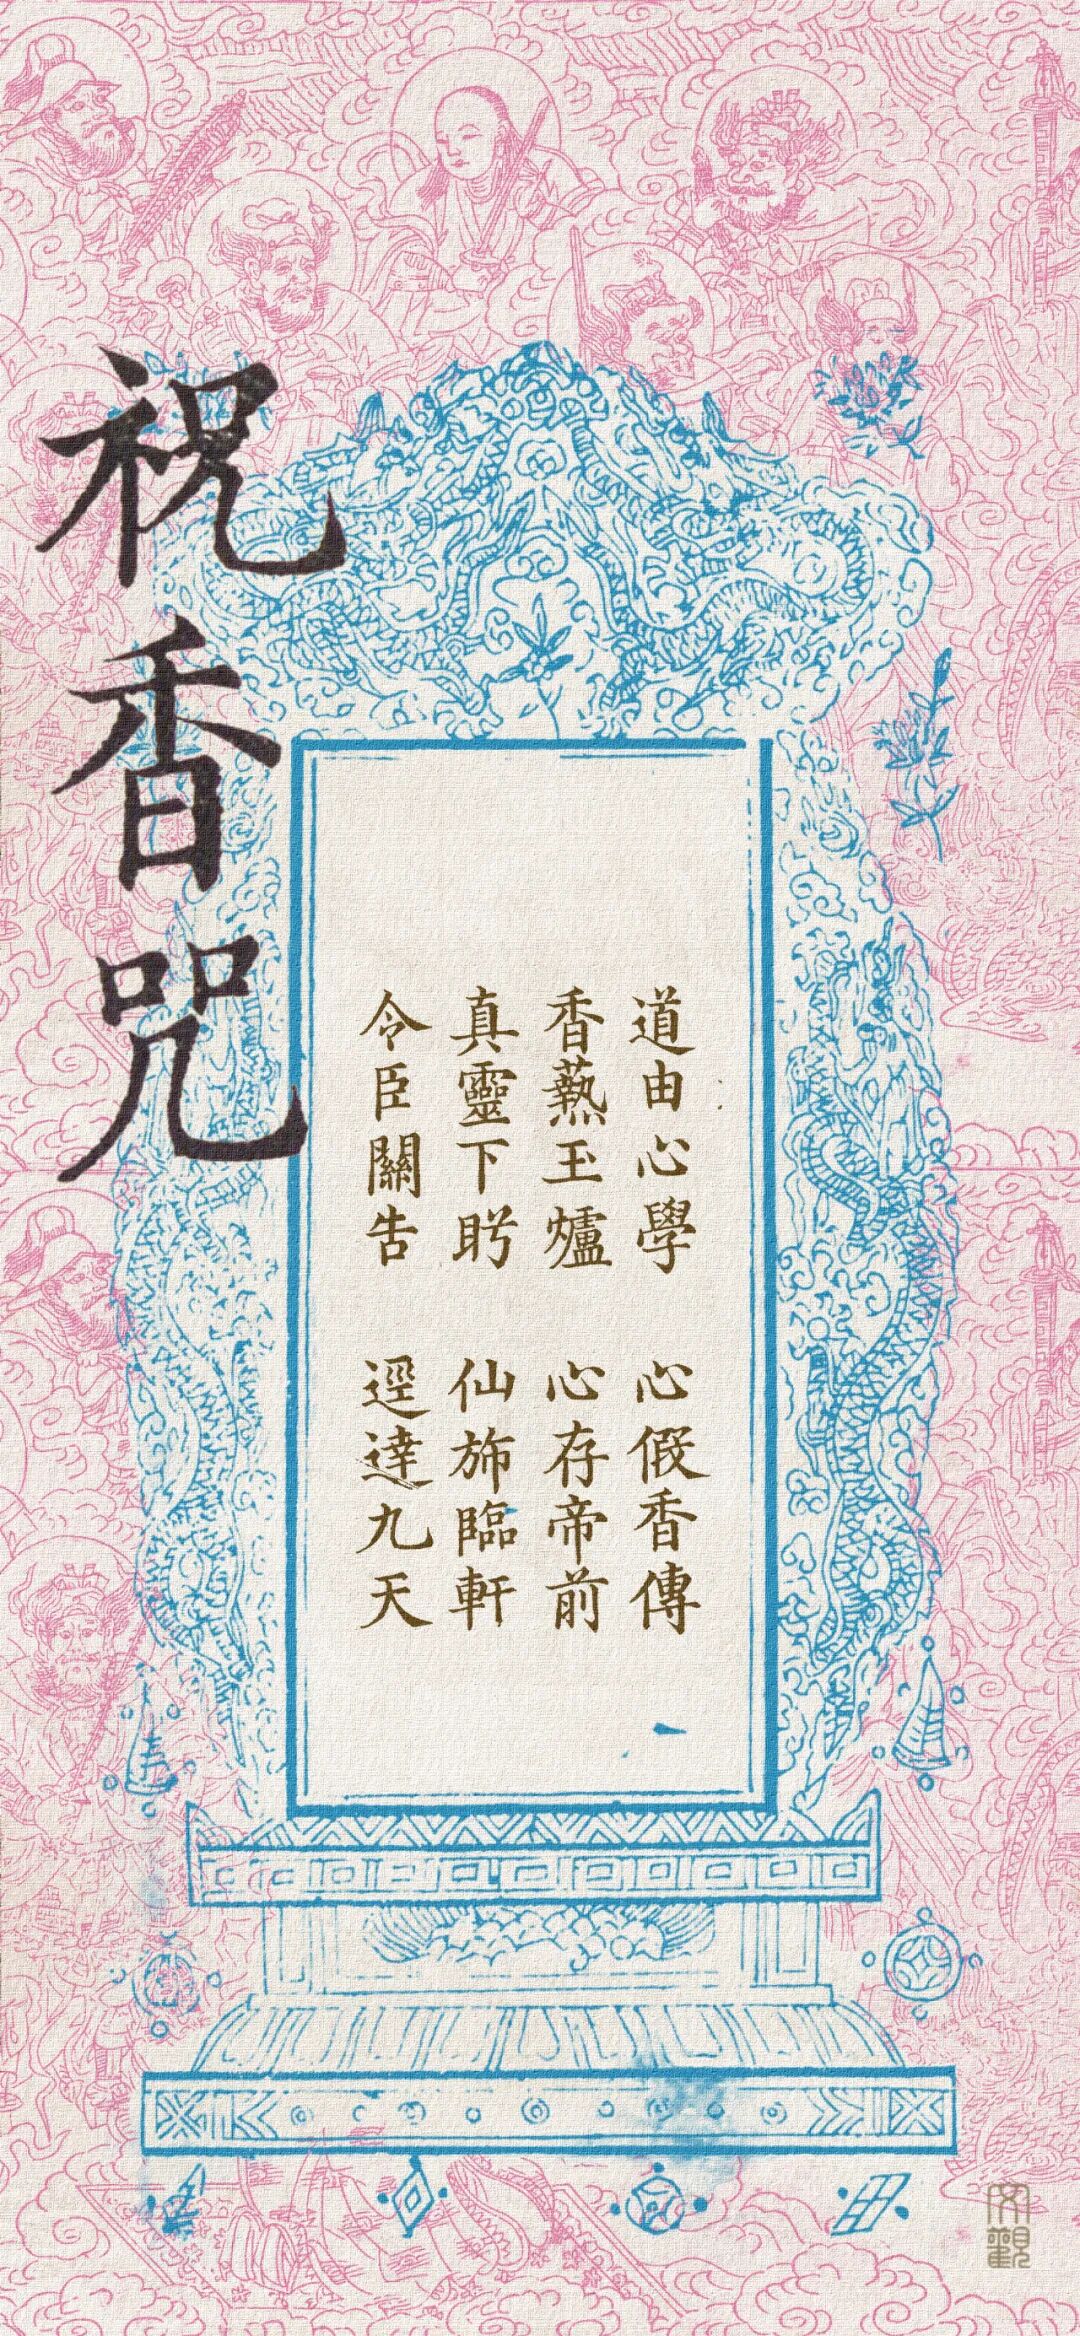 祝香咒
道由心學 心假香傳
香爇玉爐 心存帝前
真靈下盻 仙旆臨軒
令臣關告 逕達九天
文觀